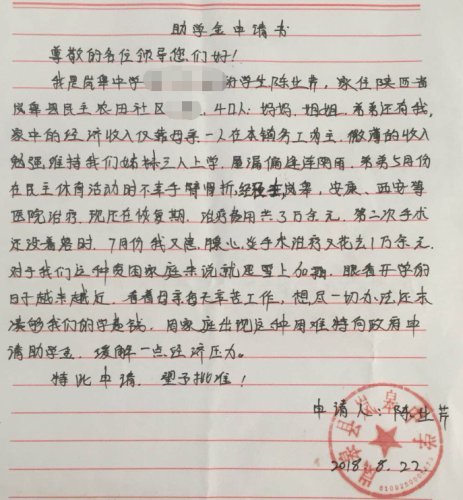 助学金申请书
尊敬的各位领导您们好！
我是岚皋中学 的学生陈业芹，家住陕西省
岚皋县民主农田社区 ，4口人：妈妈、姐姐、弟弟还有我，
家中的经济收入仅靠母亲一人在本镇务工为主，微薄的收入
勉强维持我们姊妹三人上学，屋漏偏逢连阴雨，弟弟5月份
在民主体育活动时不幸手臂骨折，经 岚皋、安康、西安等
医院治疗，现还在恢复期，治疗费用共3万余元，第二次手术
还没着落时，7月份我又患 炎手术治疗又花去1万余元，
对于我们这种贫困家庭来说就是雪上加霜，眼看开学的
日子越来越近，看着母亲每天辛苦工作，想尽一切办法还未
凑够我们的学杂钱，因家庭出现这种困难特向政府申
请助学金，缓解一点经济压力。
特此申请，望予批准！
申请人：陈业芹
2018.8.22.
岚皋县 岚皋中学